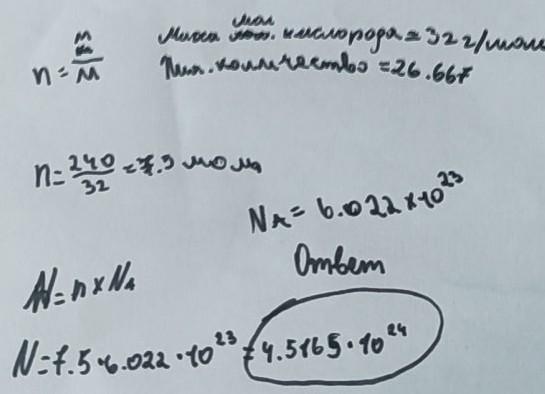 n = m/M
Масса мол. кислорода = 32 г/моль
Тип. количество = 26.667
n = 240/32 = 7.5 моль
N_A = 6.022 × 10^23
N = n × N_A
Ответ
N = 7.5 · 6.022 · 10^23 = 4.5165 · 10^24